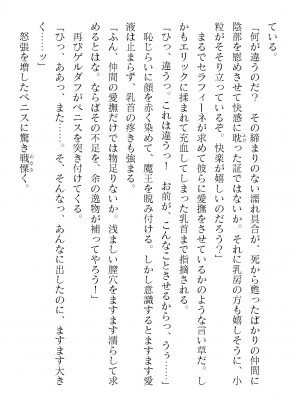 ている。
「何が違うのだ？　その締まりのない濡れ具合が、死から甦ったばかりの仲間に
陰部を慰めさせて快感に耽った証ではないか。それに乳房の方も嬉しそうに、小
粒がそそり立っているぞ。快楽が嬉しいのだろう」
　まるでセラフィーネが求めて彼らに愛撫をさせているかのような言い草だ。し
かもエリックに揉まれて充血してしまった乳首まで指摘される。
「ひっ、違うっ。これは違うっ！　お前が、こんなことさせるからっ、うぅ……」
　恥じらいに顔を赤く染めて、魔王を睨み付ける。しかし意識するとますます愛
液は止まらず、乳首の疼きも強まる。
「ふん、仲間の愛撫だけでは物足りないか。浅ましい膣穴をますます濡らして求
めるとは。ならばその不足を、余の逸物が補ってやろう！」
　再びゲルダフがペニスを突き付けてくる。
「ひっ、ああっ、また……。そ、そんなっ、あんなに出したのに、ますます大き
く……ッ」
　怒張を増したペニスに驚き戦慄く。